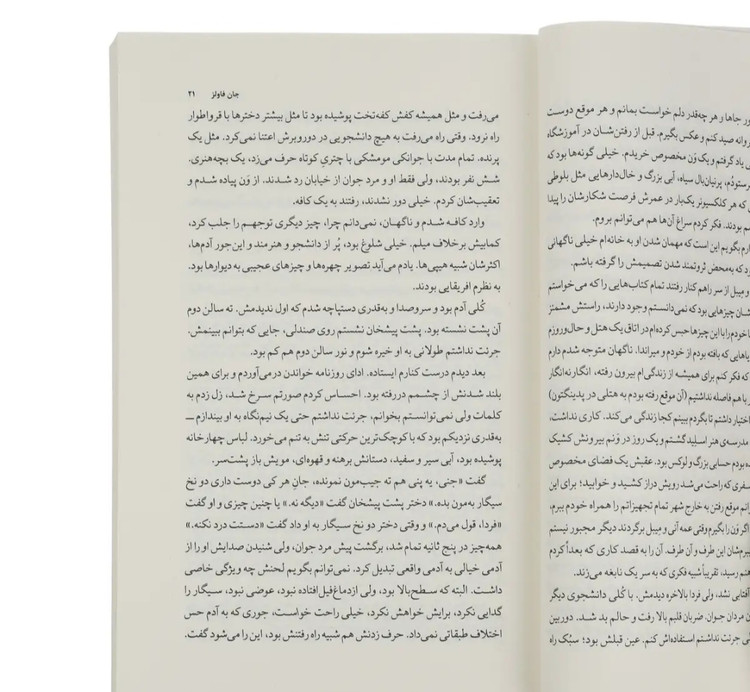 جاها و هر چه‌قدر دلم خواست بمانم و هر موقع دوست
صید کنم و عکس بگیرم. قبل از رفتن‌شان در آموزشگاه
یاد گرفتم و یک وَن مخصوص خریدم. خیلی گونه‌ها بود که
پرنیان‌بال سیاه، آبی بزرگ و خال‌دارهایی مثل بلوطی
که هر کلکسیونر یک‌بار در عمرش فرصت شکارشان را پیدا
بودند. فکر کردم سراغ آن‌ها هم می‌توانم بروم.
بگویم این است که مهمان شدن او به خانه‌ام خیلی ناگهانی
که به‌محض ثروتمند شدن تصمیمش را گرفته باشم.
و مِیبل از سر راهم کنار رفتند تمام کتاب‌هایی را که می‌خواستم
چیزهایی بود که نمی‌دانستم وجود دارند، راستش مشمئز
خودم را با این چیزها حبس کرده‌ام در اتاق یک هتل و حال‌وروزم
که بافته بودم از خودم و میراندا. ناگهان متوجه شدم دارم
که فکر کنم برای همیشه از زندگی‌ام بیرون رفته، انگارنه‌انگار
با هم فاصله نداشتیم (آن موقع رفته بودم به هتلی در پدینگتون)
اختیار داشتم تا بگردم ببینم کجا زندگی می‌کند. کاری نداشت،
مدرسه‌ی هنر اسلید گشتم و یک روز در وَنم بیرونش کشیک
بودم حسابی بزرگ و لوکس بود. عقبش یک فضای مخصوص
سفری که راحت می‌شد رویش دراز کشید و خوابید؛ برای این
موقع رفتن به خارج شهر تمام تجهیزاتم را همراه خودم ببرم،
اگر وَن را بگیرم وقتی عمه آنی و مِیبل برگردند دیگر مجبور نیستم
این طرف و آن طرف. آن را به قصد کاری که بعداً کردم
رسید، تقریباً شبیه فکری که به سر یک نابغه می‌زند.
آفتابی نشد، ولی فردا بالاخره دیدمش. با کلی دانشجوی دیگر
مردان جوان. ضربان قلبم بالا رفت و حالم بد شد. دوربین
جرئت نداشتم استفاده‌اش کنم. عین قبلش بود؛ سبُک راه
جان فاولز ۲۱
می‌رفت و مثل همیشه کفش کفه‌تخت پوشیده بود تا مثل بیشتر دخترها با قرواطوار
راه نرود. وقتی راه می‌رفت به هیچ دانشجویی در دوروبرش اعتنا نمی‌کرد. مثل یک
پرنده. تمام مدت با جوانکی مومشکی با چتریِ کوتاه حرف می‌زد، یک بچه‌هنری.
شش نفر بودند، ولی فقط او و مرد جوان از خیابان رد شدند. از وَن پیاده شدم و
تعقیب‌شان کردم. خیلی دور نشدند، رفتند به یک کافه.
وارد کافه شدم و ناگهان، نمی‌دانم چرا، چیز دیگری توجهم را جلب کرد،
کمابیش برخلاف میلم. خیلی شلوغ بود، پُر از دانشجو و هنرمند و این‌جور آدم‌ها،
اکثرشان شبیه هیپی‌ها. یادم می‌آید تصویر چهره‌ها و چیزهای عجیبی به دیوارها بود.
به نظرم افریقایی بودند.
کُلی آدم بود و سروصدا و به‌قدری دستپاچه شدم که اول ندیدمش. ته سالن دوم
آن پشت نشسته بود. پشت پیشخان نشستم روی صندلی، جایی که بتوانم ببینمش.
جرئت نداشتم طولانی به او خیره شوم و نور سالن دوم هم کم بود.
بعد دیدم درست کنارم ایستاده. ادای روزنامه خواندن درمی‌آوردم و برای همین
بلند شدنش از چشمم دررفته بود. احساس کردم صورتم سرخ شد، زل زدم به
کلمات ولی نمی‌توانستم بخوانم، جرئت نداشتم حتی یک نیم‌نگاه به او بیندازم ــ
به‌قدری نزدیکم بود که با کوچک‌ترین حرکتی تنش به تنم می‌خورد. لباس چهارخانه
پوشیده بود، آبی سیر و سفید، دستانش برهنه و قهوه‌ای، مویش باز پشت‌سر.
گفت «جنی، یه پنی هم ته جیب‌مون نمونده، جانِ هر کی دوست داری دو نخ
سیگار به‌مون بده.» دختر پشت پیشخان گفت «دیگه نه.» یا چنین چیزی و او گفت
«فردا، قول می‌دم.» و وقتی دختر دو نخ سیگار به او داد گفت «دستت درد نکنه.»
همه‌چیز در پنج ثانیه تمام شد، برگشت پیش مرد جوان، ولی شنیدن صدایش او را از
آدمی خیالی به آدمی واقعی تبدیل کرد. نمی‌توانم بگویم لحنش چه ویژگی خاصی
داشت. البته که سطح‌بالا بود، ولی ازدماغ‌فیل‌افتاده نبود، عوضی نبود، سیگار را
گدایی نکرد، برایش خواهش نکرد، خیلی راحت خواست، جوری که به آدم حس
اختلاف طبقاتی نمی‌داد. حرف زدنش هم شبیه راه رفتنش بود، این را می‌شود گفت.